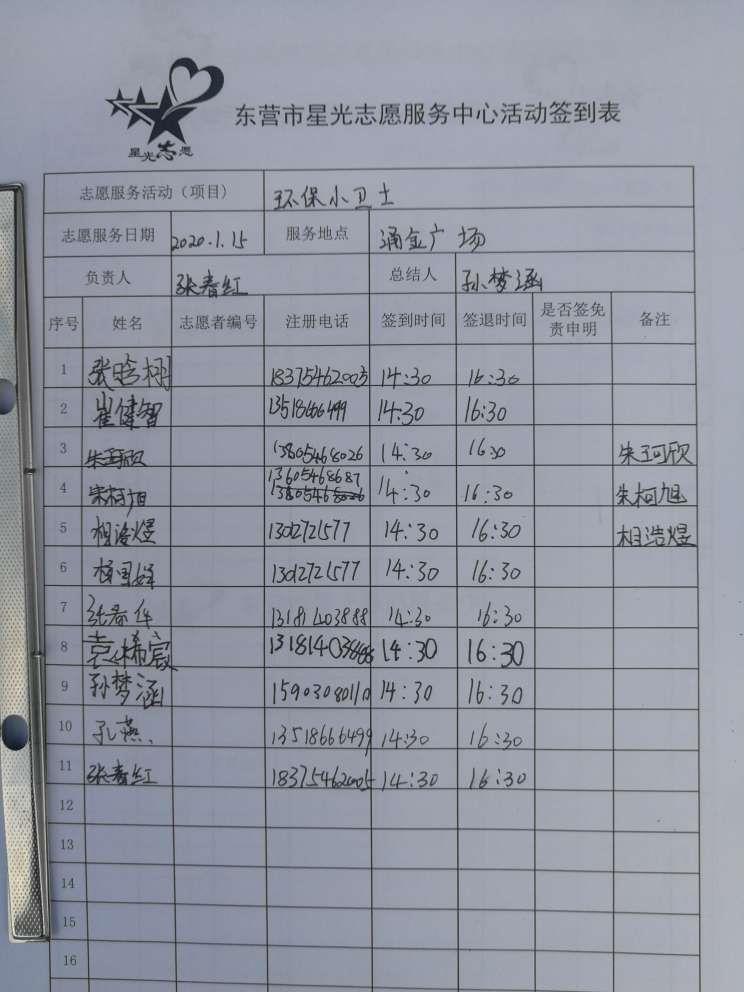 星光志愿
东营市星光志愿服务中心活动签到表
志愿服务活动（项目） 环保小卫士
志愿服务日期 2020.1.15 服务地点 涌金广场
负责人 张春红 总结人 孙梦涵
序号 姓名 志愿者编号 注册电话 签到时间 签退时间 是否签免责申明 备注
1 张晗栩 18375462005 14:30 16:30
2 崔健智 13518666499 14:30 16:30
3 朱珂欣 13805468026 14:30 16:30 朱珂欣
4 朱柯旭 13605468687 14:30 16:30 朱柯旭
5 相浩煜 13012721577 14:30 16:30 相浩煜
6 13012721577 14:30 16:30
7 张春华 13181403888 14:30 16:30
8 13181403888 14:30 16:30
9 孙梦涵 15903080110 14:30 16:30
10 孔燕 13518666499 14:30 16:30
11 张春红 18375462005 14:30 16:30
12
13
14
15
16